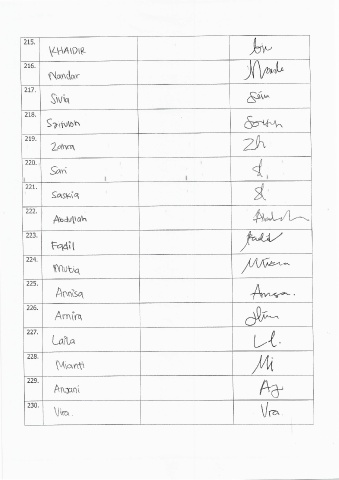 215. KHAIDIR
216. Nandar Nande
217. Silvia
218.
219. Zahra Zh
220. Sari
221. Saskia
222. Abdullah
223. Fadil Fadil
224. Mutia Mutia
225. Annisa Annisa.
226. Amira
227. Laila
228. Mianti Mi
229. Anjani Aj
230. Vira. Vra.